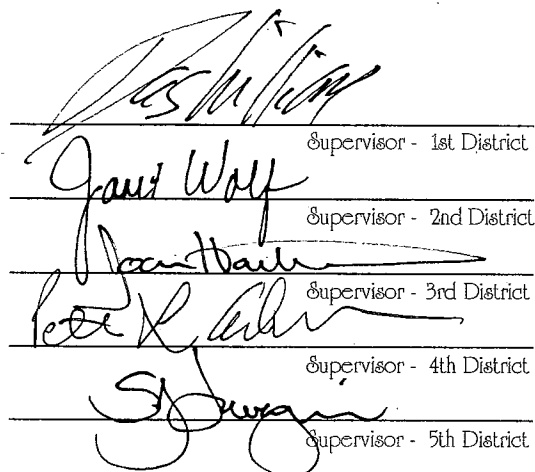 Das Williams
Supervisor - 1st District
Janet Wolf
Supervisor - 2nd District
Joan
Supervisor - 3rd District
Peter
Supervisor - 4th District
Supervisor - 5th District